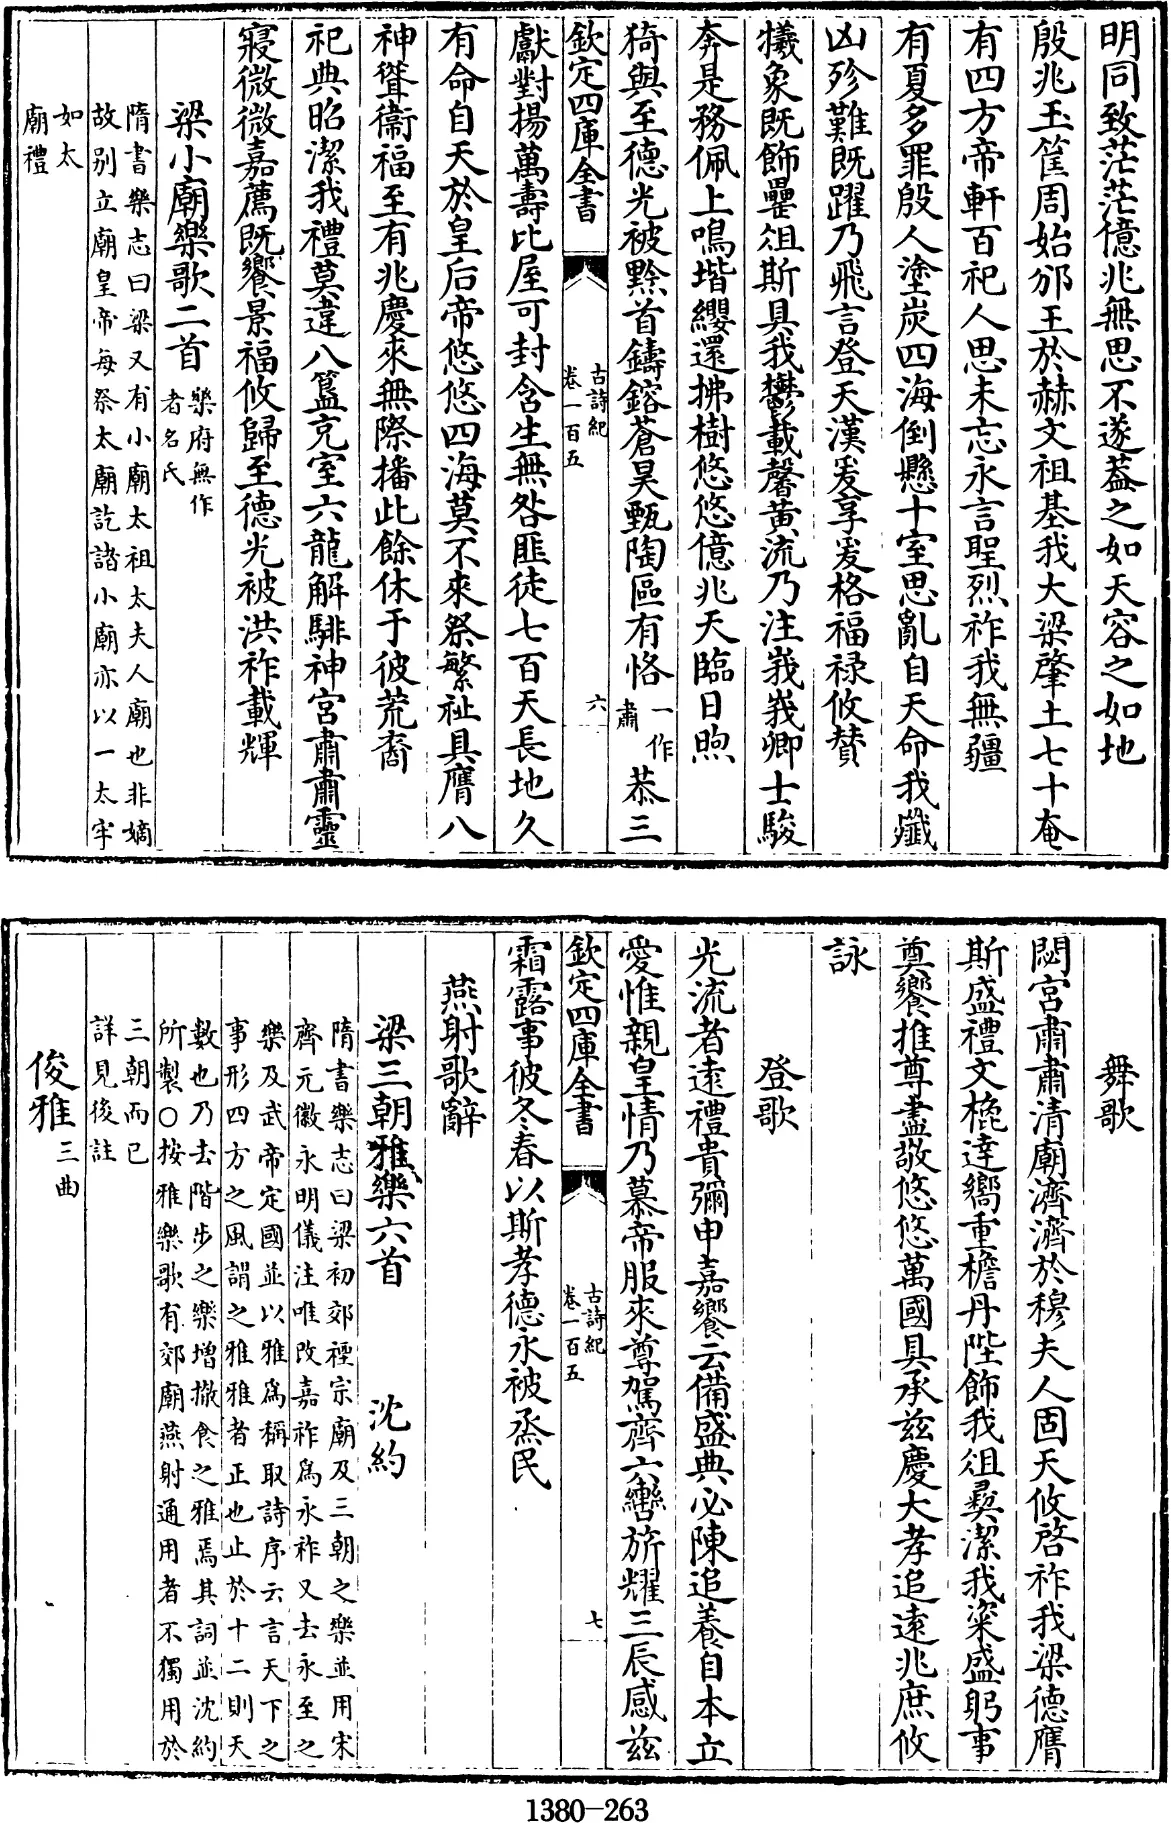 明同致茫茫億兆無思不遂葢之如天容之如地
殷兆玉筐周始邠王於赫文祖基我大梁肇土七十奄
有四方帝軒百祀人思未忘永言聖烈祚我無疆
有夏多罪殷人塗炭四海倒懸十室思亂自天命我殲
凶殄難既躍乃飛言登天漢爰享爰格福禄攸賛
犧象既飾罍俎斯具我鬱載馨黄流乃注峩峩卿士駿
奔是務佩上鳴堦纓還拂樹悠悠億兆天臨日煦
猗與至徳光被黔首鑄鎔蒼昊甄陶區有恪一作肅恭三
欽定四庫全書
古詩紀
卷一百五
六
獻對揚萬壽比屋可封含生無咎匪徒七百天長地久
有命自天於皇后帝悠悠四海莫不來祭繁祉具膺八
神聳衛福至有兆慶來無際播此餘休于彼荒裔
祀典昭潔我禮莫違八簋充室六龍解騑神宫肅肅靈
寢微微嘉薦既饗景福攸歸至徳光被洪祚載輝
梁小廟樂歌二首樂府無作
者名氏
隋書樂志曰梁又有小廟太祖太夫人廟也非嫡
故别立廟皇帝每祭太廟訖諸小廟亦以一太牢
如太
廟禮
舞歌
閟宫肅肅清廟濟濟於穆夫人固天攸啓祚我梁徳膺
斯盛禮文槐達嚮重檐丹陛飾我俎彛潔我粢盛躬事
奠饗推尊盡敬悠悠萬國具承兹慶大孝追逺兆庶攸
詠
登歌
光流者逺禮貴彌申嘉饗云備盛典必陳追養自本立
愛惟親皇情乃慕帝服來尊駕齊六轡旂耀三辰感兹
欽定四庫全書
古詩紀
卷一百五
七
霜露事彼冬春以斯孝徳永被烝民
燕射歌辭
梁三朝雅樂六首　沈約
隋書樂志曰梁初郊禋宗廟及三朝之樂並用宋
齊元徽永明儀注唯改嘉祚為永祚又去永至之
樂及武帝定國並以雅為稱取詩序云言天下之
事形四方之風謂之雅雅者正也止於十二則天
數也乃去階步之樂增撤食之雅焉其詞並沈約
所製○按雅樂歌有郊廟燕射通用者不獨用於
三朝而已
詳見後註
俊雅三曲
1380-263